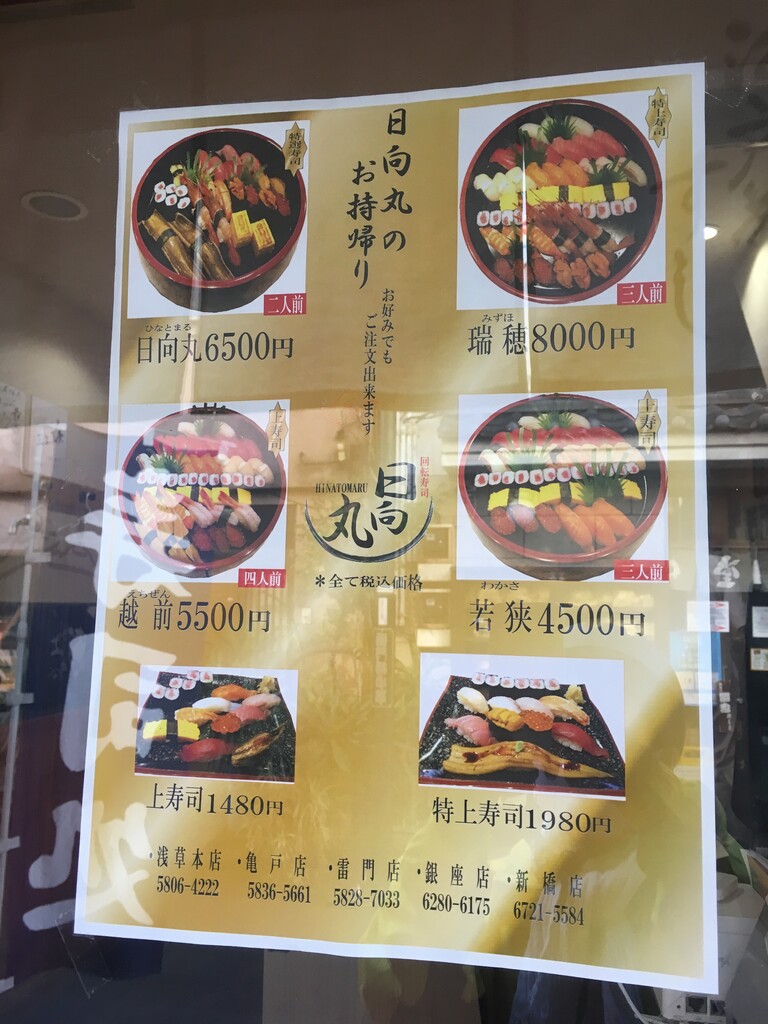 日向丸の
お持帰り
お好みでも
ご注文出来ます
特選寿司
二人前
ひなとまる
日向丸6500円
特上寿司
三人前
みずほ
瑞穂8000円
上寿司
四人前
えちぜん
越前5500円
回転寿司
日向丸
HINATOMARU
*全て税込価格
上寿司
三人前
わかさ
若狭4500円
上寿司1480円
特上寿司1980円
・浅草本店 ・亀戸店 ・雷門店 ・銀座店 ・新橋店
5806-4222 5836-5661 5828-7033 6280-6175 6721-5584